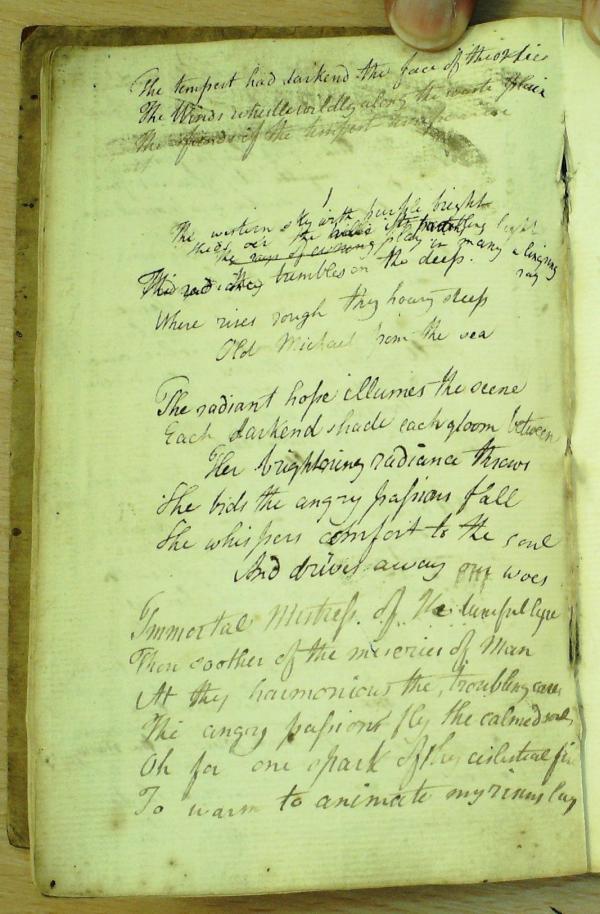 The tempest had darkend the face of the skies
The Winds whistle wildly along the waste plain
The fiends of the tempest
The western sky with purple bright
sheds oer the hills its parting light
the rays of evening play in many a lingring ray
This radiancy trembles on the deep.
Where rises rough thy hoary steep
Old Michael from the sea
The radiant hope illumes the scene
Each darkend shade each gloom between
Her brightning radiance throws
She bids the angry passions fall
She whispers comfort to the soul
And drives away our woes
Immortal Mistress. of the tuneful lyre
Thou soother of the miseries of Man
At thy harmonious the, troubling cares
The angry passions fly the calmed soul,
Oh for one spark of thy celestial fire
To warm to animate my rising lay